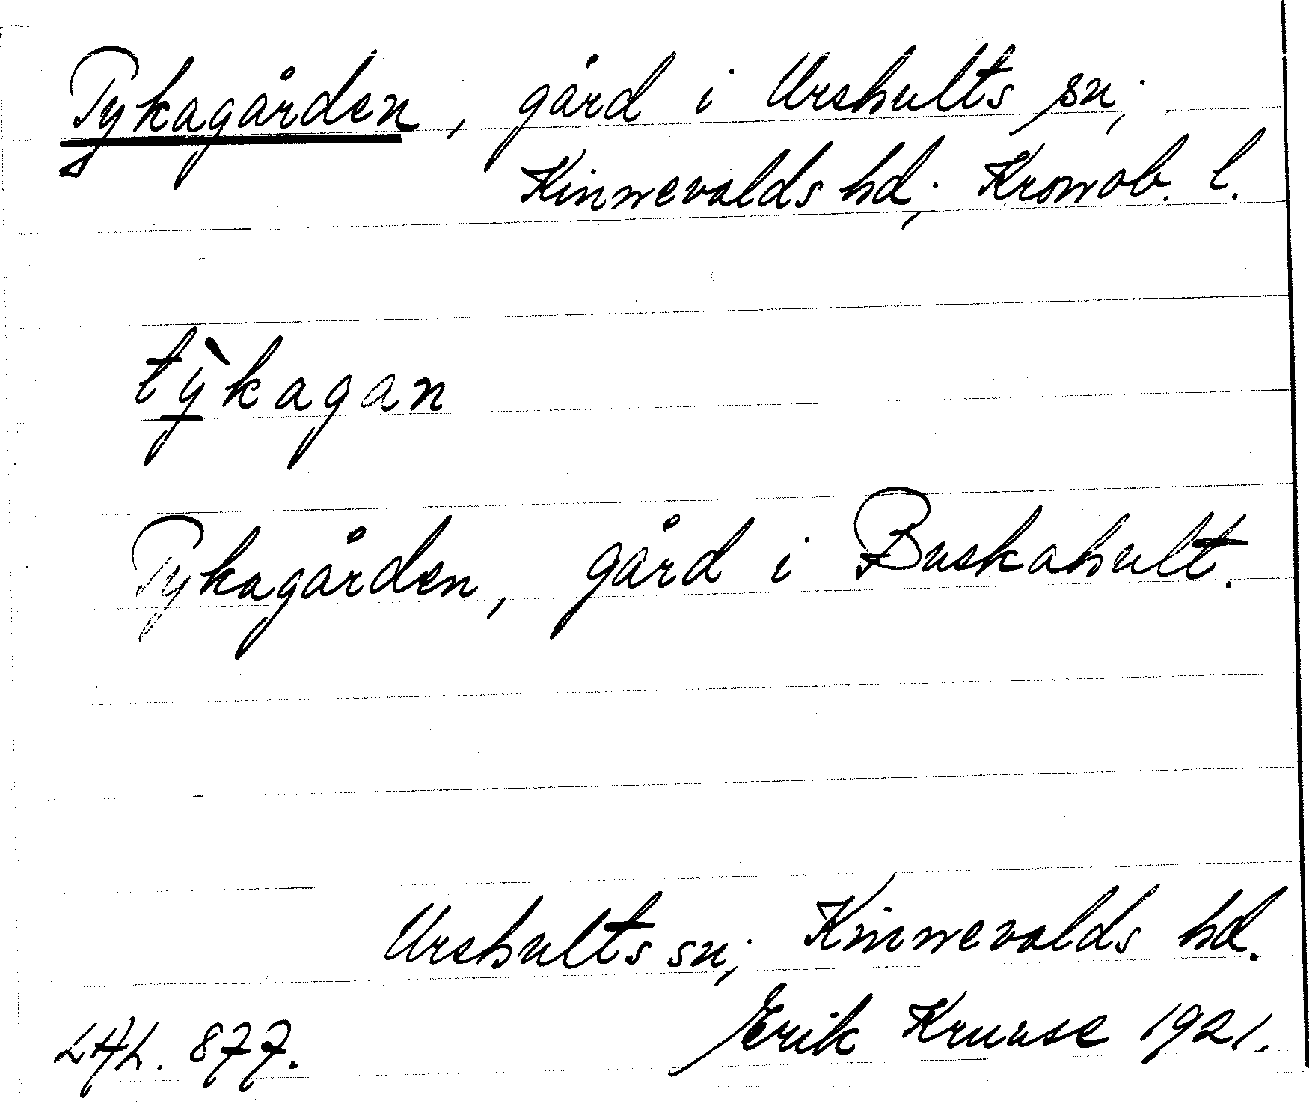 Tykagården, gård i Urshults sn;
Kinnevalds hd; Kronob. l.
tỳ̠kagan
Tykagården, gård i Buskahult.
Urshults sn; Kinnevalds hd.
LAL. 877. Erik Kruuse 1921.